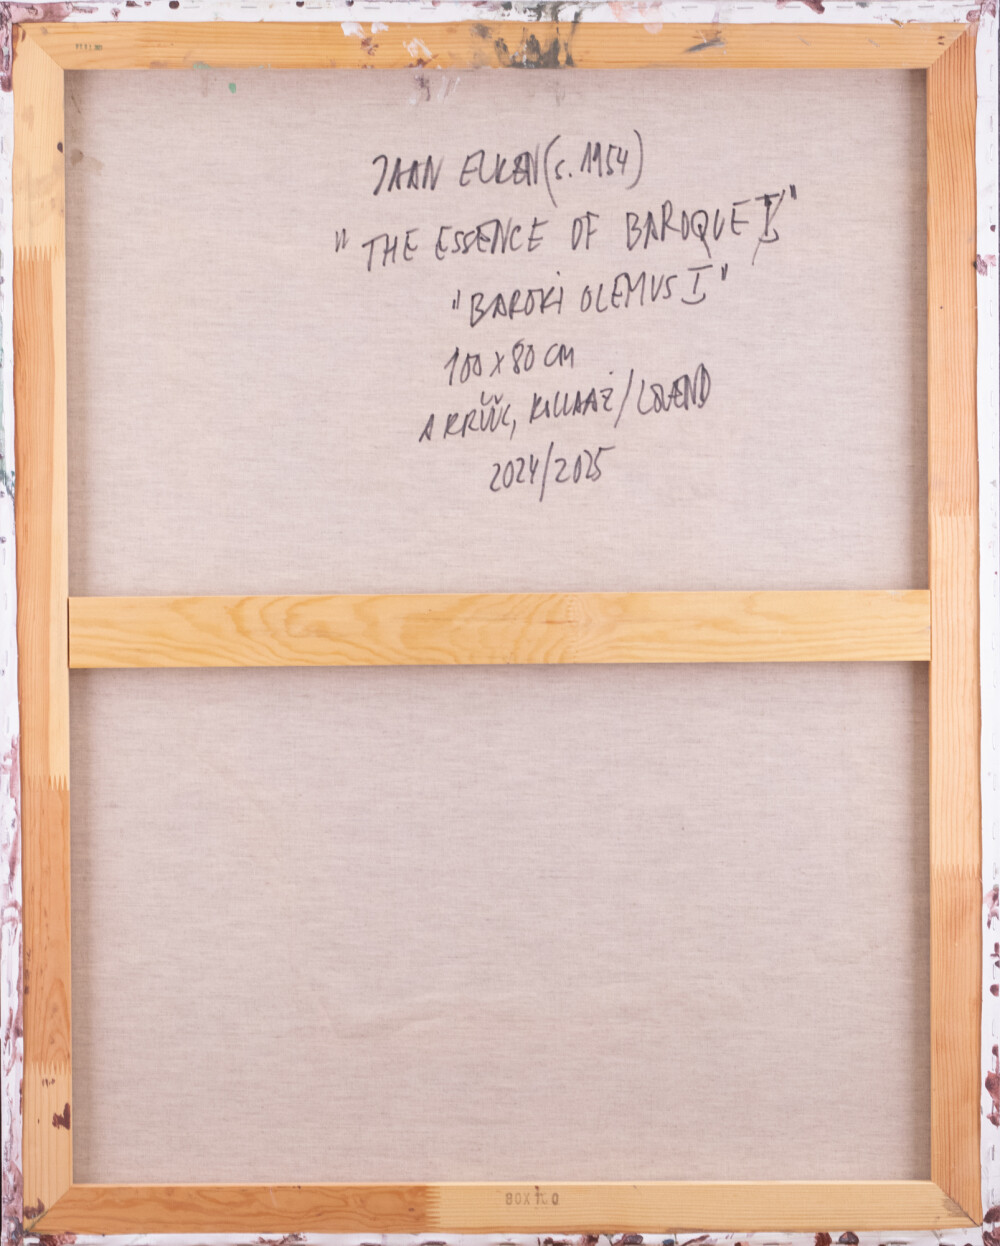 JAAN ELKEN (s. 1954)
"THE ESSENCE OF BAROQUE I"
"BAROKI OLEMUS I"
100 X 80 CM
AKRÜÜL, KILLAAŽ / LÕUEND
2024/2025
80X100